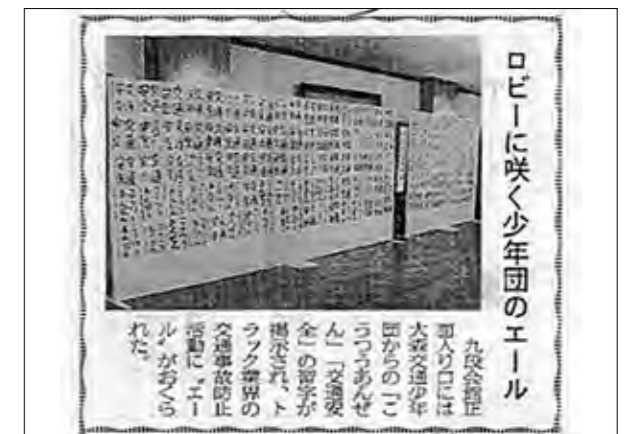 ロビーに咲く少年団のエール
九段会館正
面入り口には
大森交通少年
団からの「こ
うつうあんぜ
ん」「交通安
全」の習字が
掲示され、ト
ラック業界の
交通事故防止
活動に〝エー
ル〟がおくら
れた。